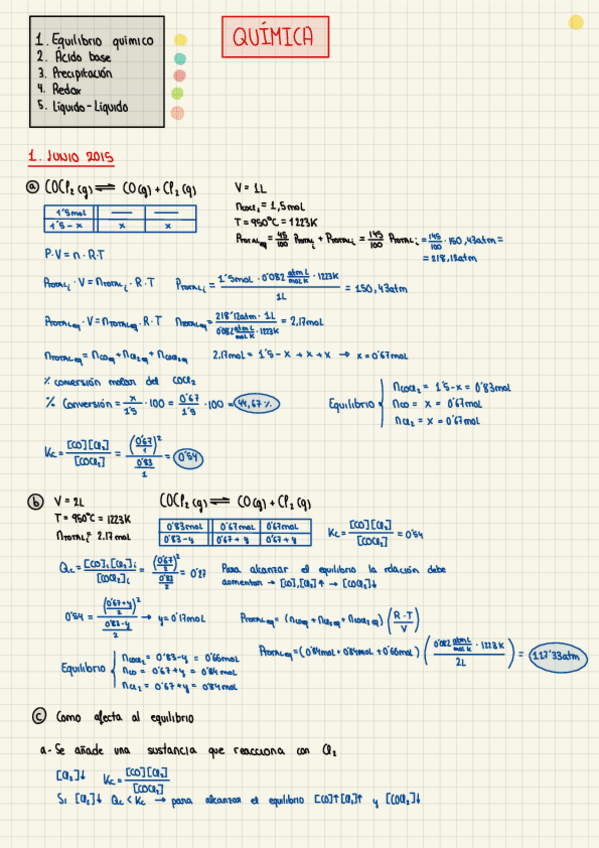 QUÍMICA
1. Equilibrio químico
2. Ácido base
3. Precipitación
4. Redox
5. Líquido-Líquido
1. JUNIO 2015
a) COCl₂ (g) ⇌ CO(g) + Cl₂ (g)
V = 1L
n COCl₂ = 1,5mol
T = 950ºC = 1223K
1'5mol — —
1'5-x x x
P TOTAL eq = 45/100 P TOTAL i + P TOTAL i = 145/100 P TOTAL i = 145/100 · 150,43atm =
= 218,12atm
P·V = n·R·T
P TOTAL i · V = n TOTAL i · R · T P TOTAL i = (1'5mol · 0'082 atm L/mol K · 1223K)/1L = 150,43atm
P TOTAL eq · V = n TOTAL eq · R · T n TOTAL eq = (218'12atm · 1L)/(0'082 atm L/mol K · 1223K) = 2,17mol
n TOTAL eq = n CO eq + n Cl₂ eq + n COCl₂ eq 2.17mol = 1'5-x + x + x → x = 0'67mol
% conversión molar del COCl₂
% Conversión = x/1'5 · 100 = 0'67/1'5 · 100 = 44,67%
Equilibrio
n COCl₂ = 1'5-x = 0'83mol
n CO = x = 0'67mol
n Cl₂ = x = 0'67mol
Kc = [CO][Cl₂]/[COCl₂] = (0'67/1)²/(0'83/1) = 0'54
b) V = 2L COCl₂ (g) ⇌ CO(g) + Cl₂ (g)
T = 950ºC = 1223K
n TOTAL i = 2.17mol
0'83mol 0'67mol 0'67mol
0'83-y 0'67+y 0'67+y
Kc = [CO][Cl₂]/[COCl₂] = 0'54
Qc = [CO]i[Cl₂]i/[COCl₂]i = (0'67/2)²/(0'83/2) = 0'27 Para alcanzar el equilibrio la relación debe
aumentar → [CO],[Cl₂]↑ → [COCl₂]↓
0'54 = ((0'67+y)/2)²/((0'83-y)/2) → y = 0'17mol P TOTAL eq = (n CO eq + n Cl₂ eq + n COCl₂ eq) (R·T/V)
P TOTAL eq = (0'84mol + 0'84mol + 0'66mol) (0'082 atm L/mol K · 1223K/2L) = 117'33atm
Equilibrio
n COCl₂ = 0'83-y = 0'66mol
n CO = 0'67+y = 0'84mol
n Cl₂ = 0'67+y = 0'84mol
c) Como afecta al equilibrio
a- Se añade una sustancia que reacciona con Cl₂
[Cl₂]↓ Kc = [CO][Cl₂]/[COCl₂]
Si [Cl₂]↓ Qc < Kc → para alcanzar el equilibrio [CO]↑[Cl₂]↑ y [COCl₂]↓